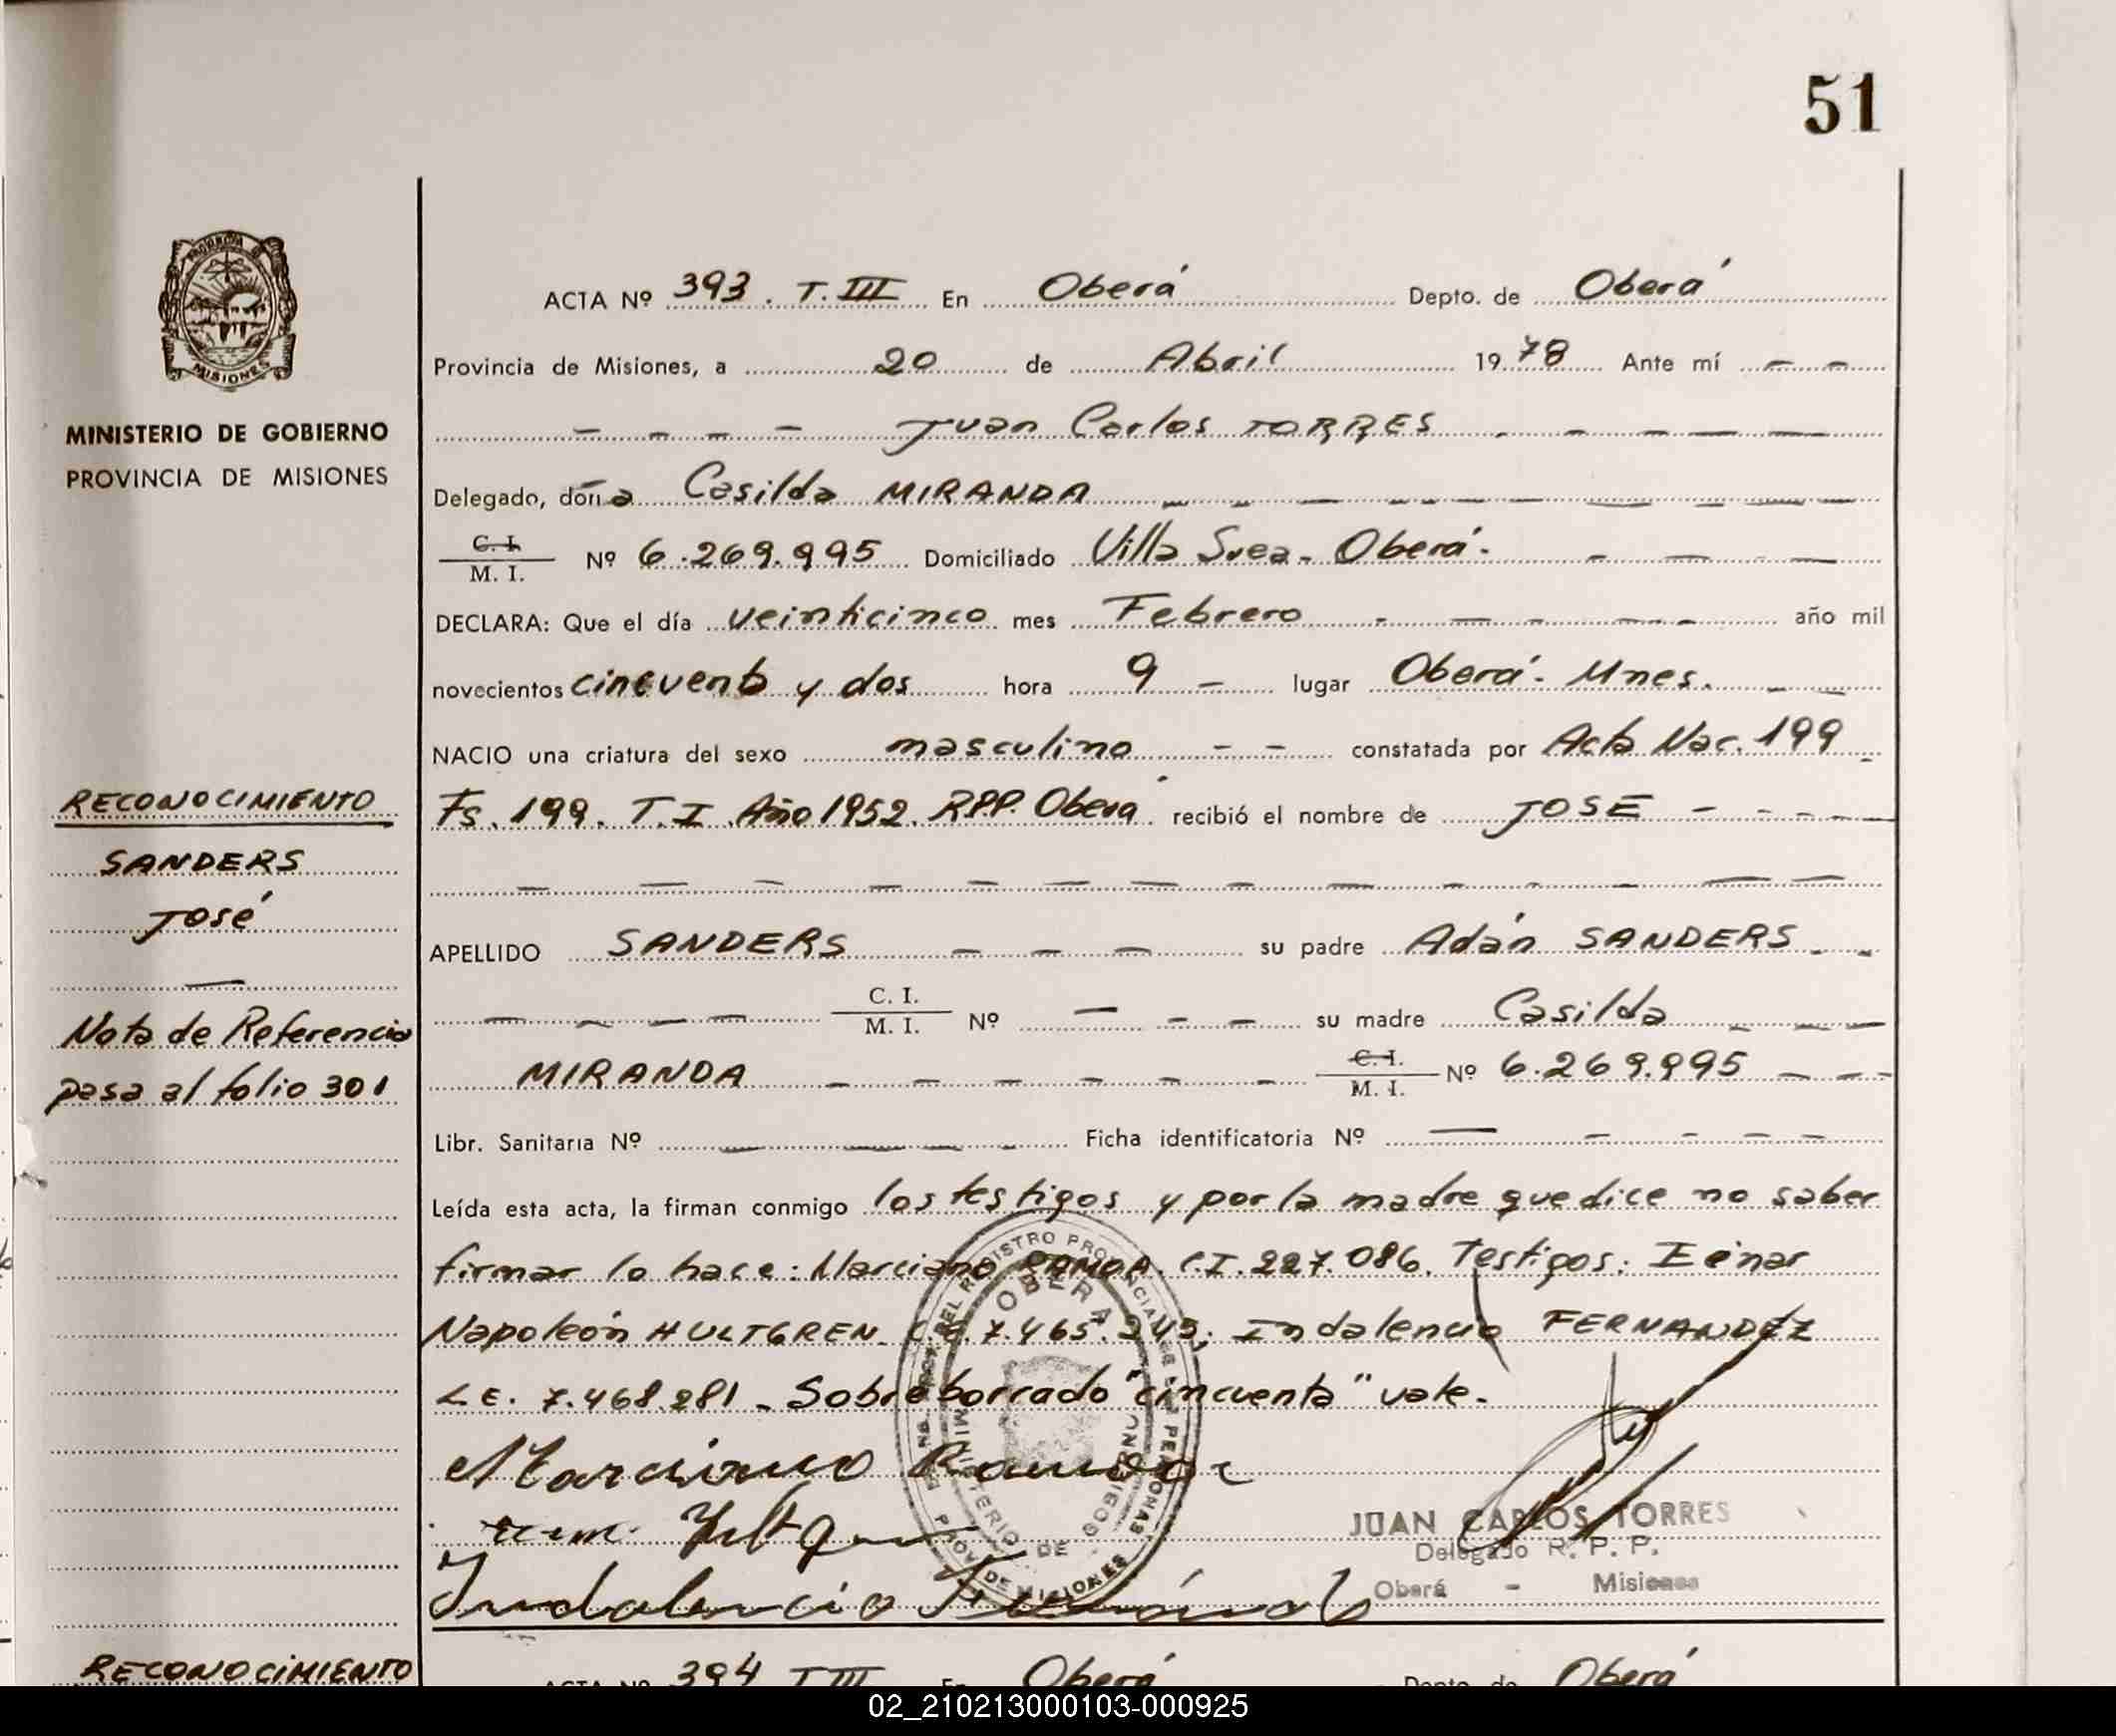 51
ACTA Nº 393. T. III En Oberá Depto. de Oberá
Provincia de Misiones, a 20 de Abril 1978 Ante mí — —
— — — — Juan Carlos TORRES — — — — —
Delegado, doña Casilda MIRANDA — — — — — — — — — —
C. I. / M. I. Nº 6.269.995 Domiciliado Villa Svea - Oberá. — — —
DECLARA: Que el día veinticinco mes Febrero — — — — — año mil
novecientos cincuenta y dos hora 9 — lugar Oberá - Mnes. — —
NACIO una criatura del sexo masculino — — constatada por Acta Nac. 199
Fs. 199. T. I. Año 1952. R.P.P. Oberá recibió el nombre de JOSE — — — —
— — — — — — — — — — — — — —
APELLIDO SANDERS — — — su padre Adán SANDERS — —
— — — — C. I. / M. I. Nº — — — su madre Casilda — — —
MIRANDA — — — — — — C. I. / M. I. Nº 6.269.995 — — —
Libr. Sanitaria Nº — — — — Ficha identificatoria Nº — — — — —
Leída esta acta, la firman conmigo los testigos y por la madre que dice no saber
firmar lo hace: Marciano RAMOA. C.I. 227.086. Testigos: Einar
Napoleón HULTGREN 7.465.243; Indalencio FERNANDEZ
L.E. 7.468.281 - Sobreborrado "cincuenta" vale.
Marciano Ramoa
Indalencio Fernández
JUAN CARLOS TORRES
Delegado R. P. P.
Oberá - Misiones
DEL REGISTRO PROVINCIAL DE LAS PERSONAS
OBERA
MINISTERIO DE GOBIERNO
PROV. DE MISIONES
PROVINCIA
MISIONES
MINISTERIO DE GOBIERNO
PROVINCIA DE MISIONES
RECONOCIMIENTO
SANDERS
José
—
Nota de Referencia
pasa al folio 301
RECONOCIMIENTO
ACTA Nº 394 T III En Oberá Depto. de Oberá
02_210213000103-000925